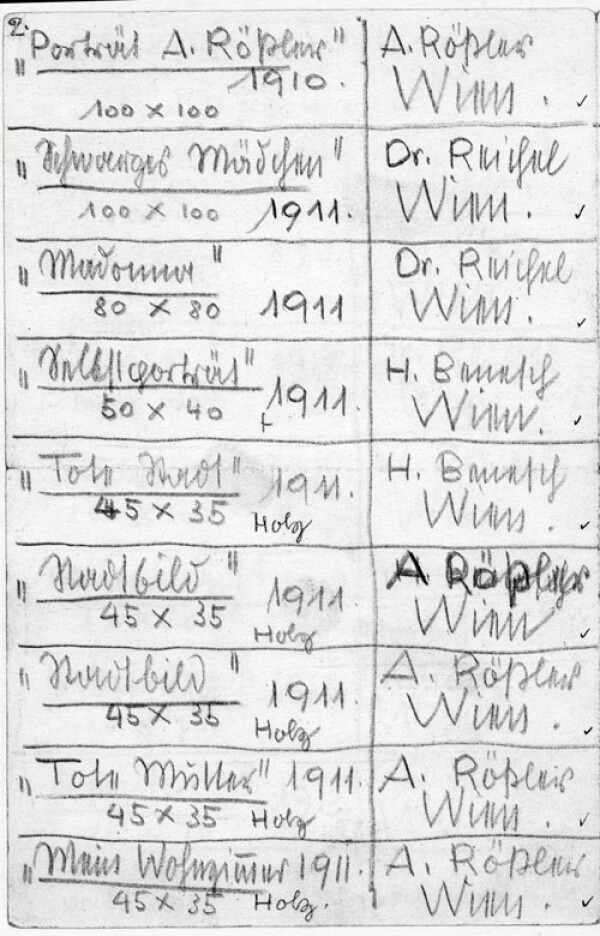 2.
"Porträt A. Rößler" A. Rößler
1910. Wien.
100 x 100
"Schwarzes Mädchen" Dr. Reichel
100 x 100 1911. Wien.
"Madonna" Dr. Reichel
80 x 80 1911 Wien.
"Selbstporträt" H. Benesch
50 x 40 1911. Wien.
"Tote Stadt" 1911. H. Benesch
45 x 35 Holz Wien.
"Stadtbild" 1911 A Rößler
45 x 35 Holz Wien
"Stadtbild" 1911. A. Rößler
45 x 35 Holz Wien.
"Tote Mutter" 1911. A. Rößler
45 x 35 Holz Wien.
"Mein Wohnzimmer 1911. A. Rößler
45 x 35 Holz. Wien.